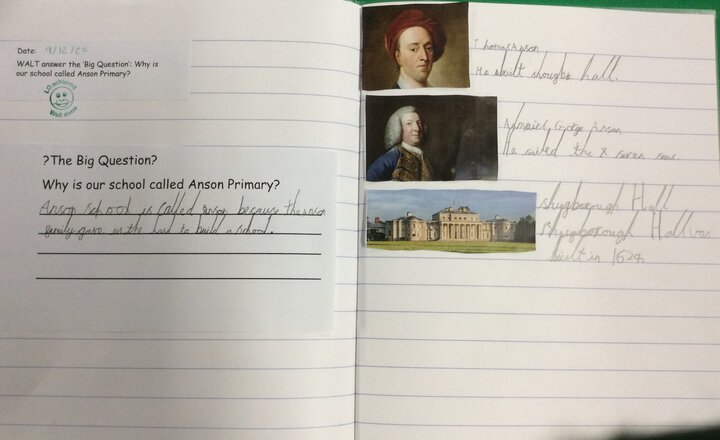 Date: 9/12/20
WALT answer the 'Big Question': Why is
our school called Anson Primary?
LO achieved
Well done
?The Big Question?
Why is our school called Anson Primary?
Anson School is called anson because the anson
family gave us the land to build a school.
Thomas Anson
He built hall.
George Anson
He sailed the X seven seas.
Hall
Hall was
built in 1624.